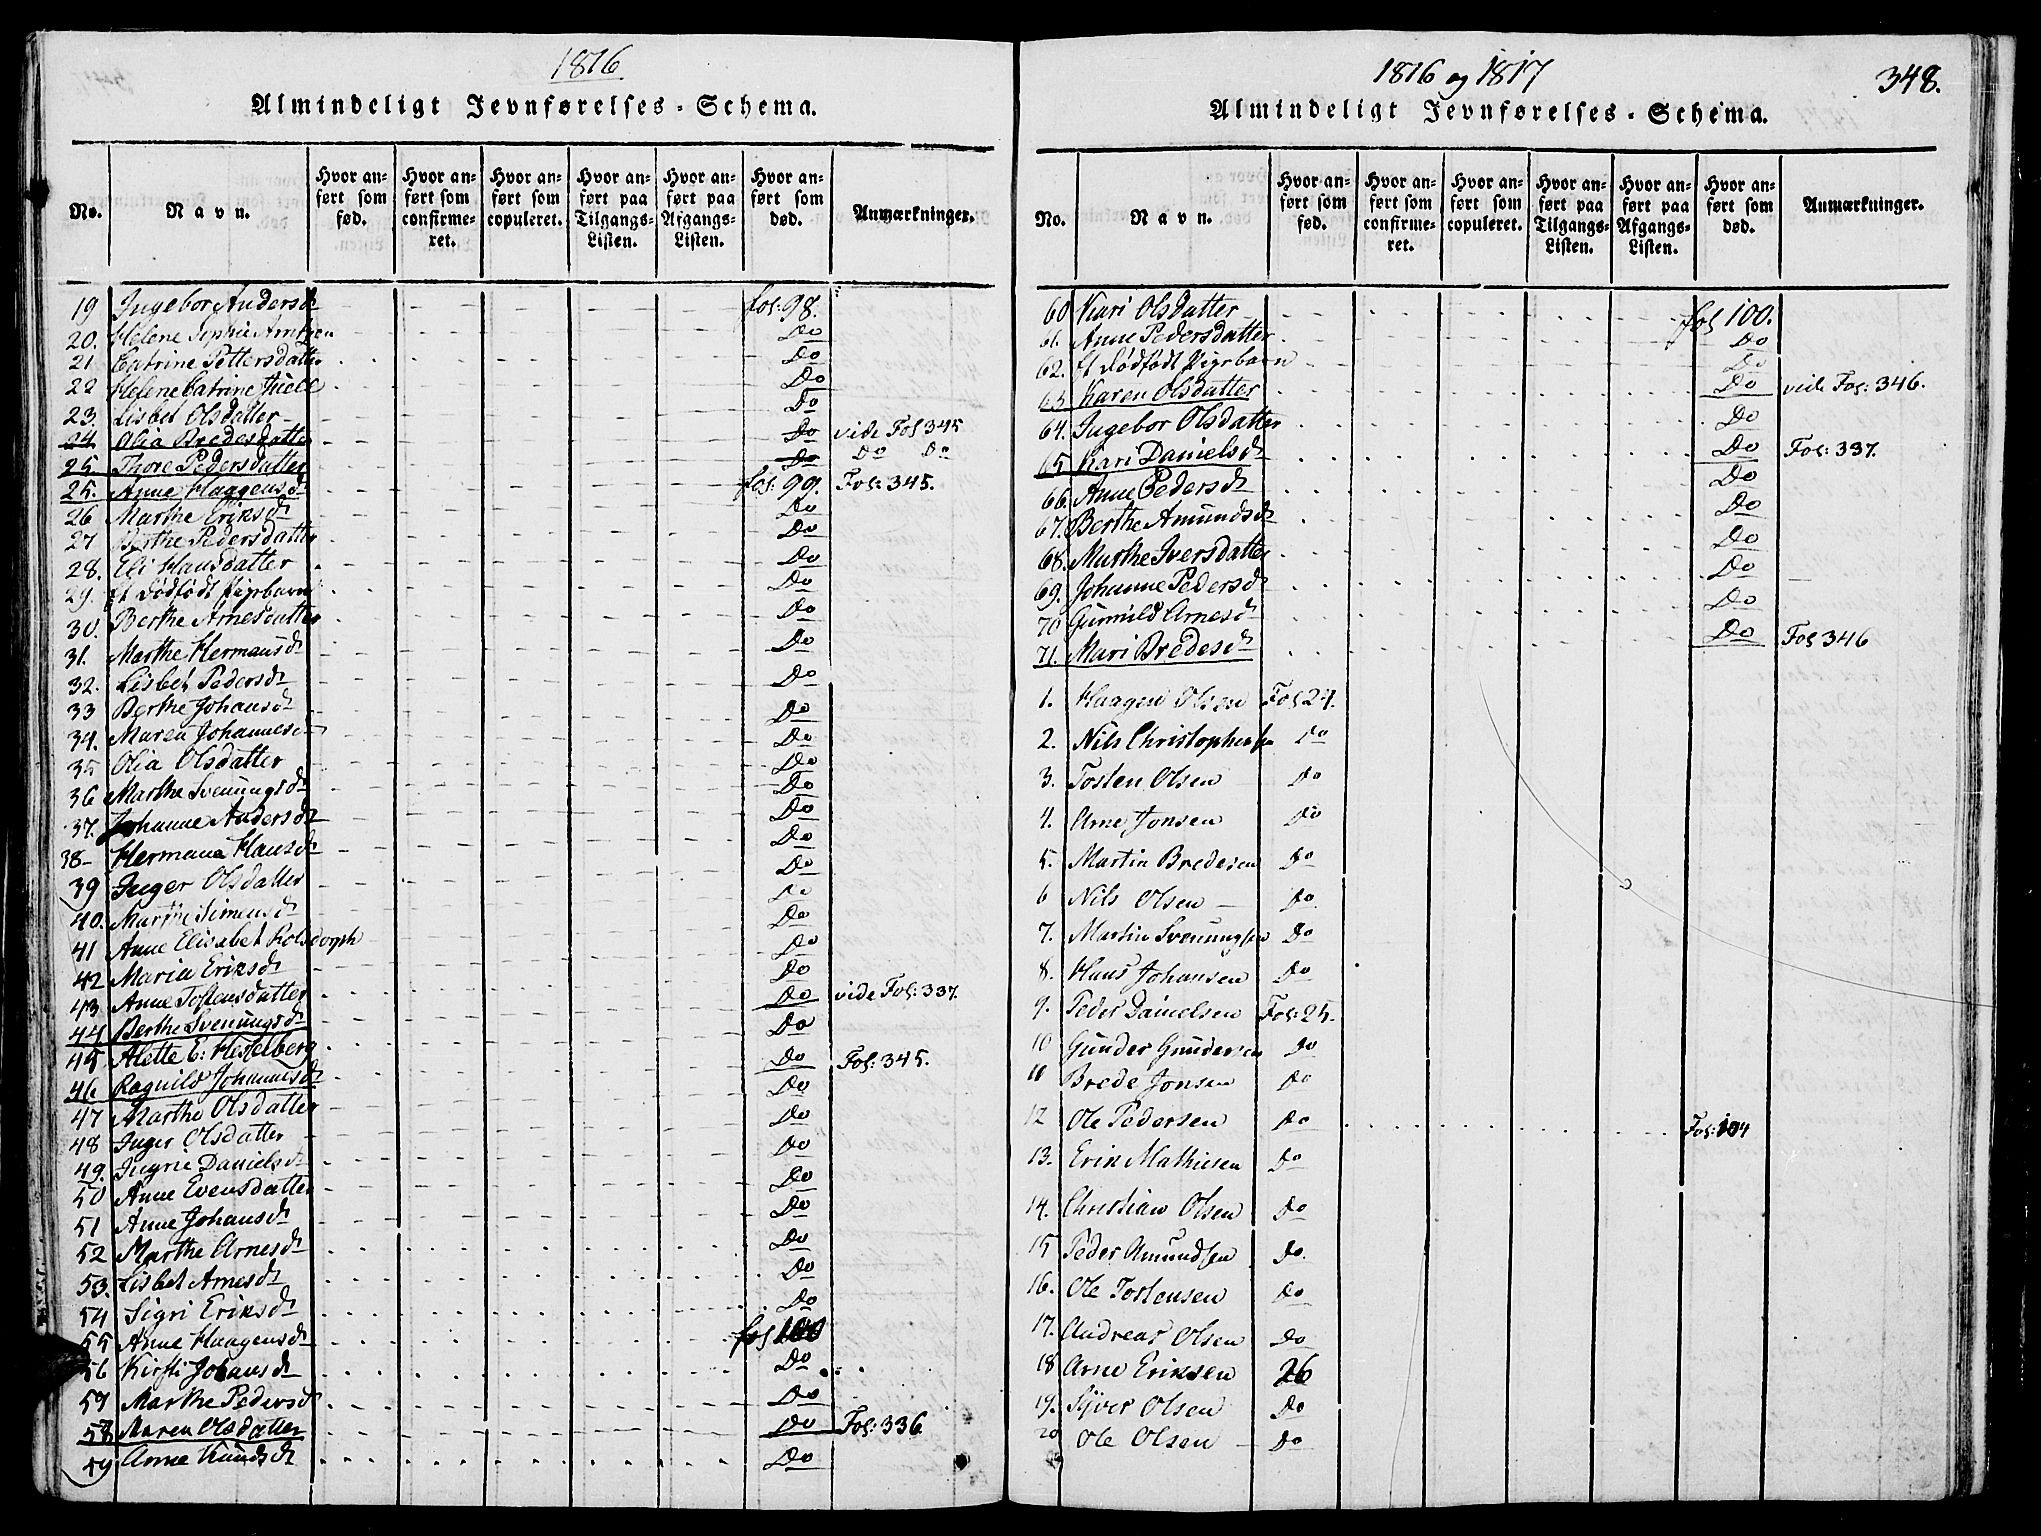 1816
Almindeligt Jevnførelses-Schema.
No. Navn. Hvor anført som fød. Hvor anført som confirmeret. Hvor anført som copuleret. Hvor anført paa Tilgangs-Listen. Hvor anført paa Afgangs-Listen. Hvor anført som død. Anmærkninger.
19 Ingebor Andersdr fol: 98.
20. Helene Sophie Arntzen Do
21 Catrine Pettersdatter Do
22 Helene Catrine Juell Do
23. Lisbet Olsdatter Do
24 Olia Bredesdatter Do vide Fol 345
25. Thore Pedersdatter Do Do Do
25. Anne Haagensdr fol: 99. Fol: 345.
26 Marthe Eriksdr Do
27 Berthe Pedersdatter Do
28. Eli Hansdatter Do
29. Et Dødfødt Pigebarn Do
30. Berthe Arnesdatter Do
31. Marthe Hermansdr Do
32. Lisbet Pedersdr Do
33 Berthe Johansdr Do
34. Maren Johannesdr Do
35 Olia Olsdatter Do
36 Marthe Svenungsdr Do
37. Johanne Andersdr Do
38- Hermana Hansdr Do
39 Inger Olsdatter Do
40. Marthe Simensdr Do
41 Anne Elisabet Kolsdorph Do
42 Maria Eriksdr Do
43. Anne Tostensdatter Do
44 Berthe Svenungsdr Do vide Fol: 337.
45 Alette E: Hesselberg Do
46 Ragnild Johannesdr Do Fol: 345.
47 Marthe Olsdatter Do
48 Inger Olsdatter Do
49. Ingrie Danielsdr Do
50 Anne Evensdatter Do
51 Anne Johansdr Do
52 Marthe Arnesdr Do
53. Lisbet Arnesdr Do
54 Sigri Eriksdr Do
55 Anne Haagensdr fol 100
56 Kirsti Johansdr Do
57 Marthe Pedersdr Do
58 Maren Olsdatter Do Fol: 336
59 Anne Knudsdr Do
1816 og 1817
348.
Almindeligt Jevnførelses-Schema.
No. Navn. Hvor anført som fød. Hvor anført som confirmeret. Hvor anført som copuleret. Hvor anført paa Tilgangs-Listen. Hvor anført paa Afgangs-Listen. Hvor anført som død. Anmærkninger.
60 Kari Olsdatter fol 100.
61. Anne Pedersdatter Do
62. Et Dødfødt Pigebarn Do
63 Karen Olsdatter Do vide Fol: 346.
64. Ingebor Olsdatter Do
65 Kari Danielsdr Do Fol: 337.
66. Anne Pedersdr Do
67. Berthe Amundsdr Do
68. Marthe Iversdatter Do
69. Johanne Pedersdr Do
70 Gunnild Arnesdr Do
71. Mari Bredesdr Do Fol 346
1. Haagen Olsen Fol 24.
2. Nils Christophersen Do
3. Tosten Olsen Do
4. Arne Jonsen Do
5. Martin Bredesen Do
6 Nils Olsen Do
7. Martin Svenungsen Do
8. Hans Johansen Do
9. Peder Danielsen Fol: 25.
10 Gunder Gundersen Do
11 Brede Jonsen Do
12 Ole Pedersen Do Fol: 104
13. Erik Mathiesen Do
14. Christian Olsen Do
15 Peder Amundsen Do
16. Ole Tostensen Do
17. Andreas Olsen Do
18 Arne Eriksen 26
19. Syver Olsen Do
20 Ole Olsen Do